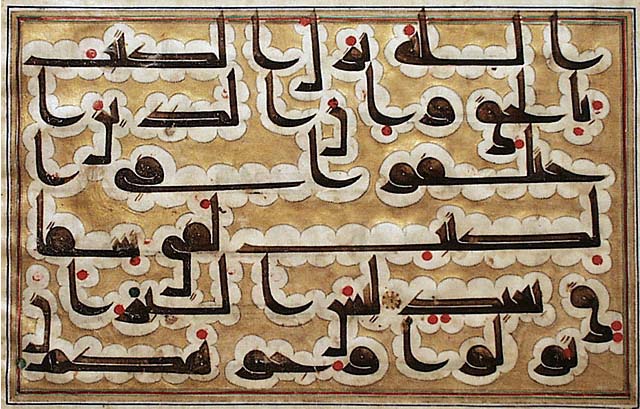 الله نزل الكتب
بالحق وان الذين ا
ختلفوا فى ا
لكتب لفى شقا
ق بعيد ليس البر ا
ن تولوا وجوهكم